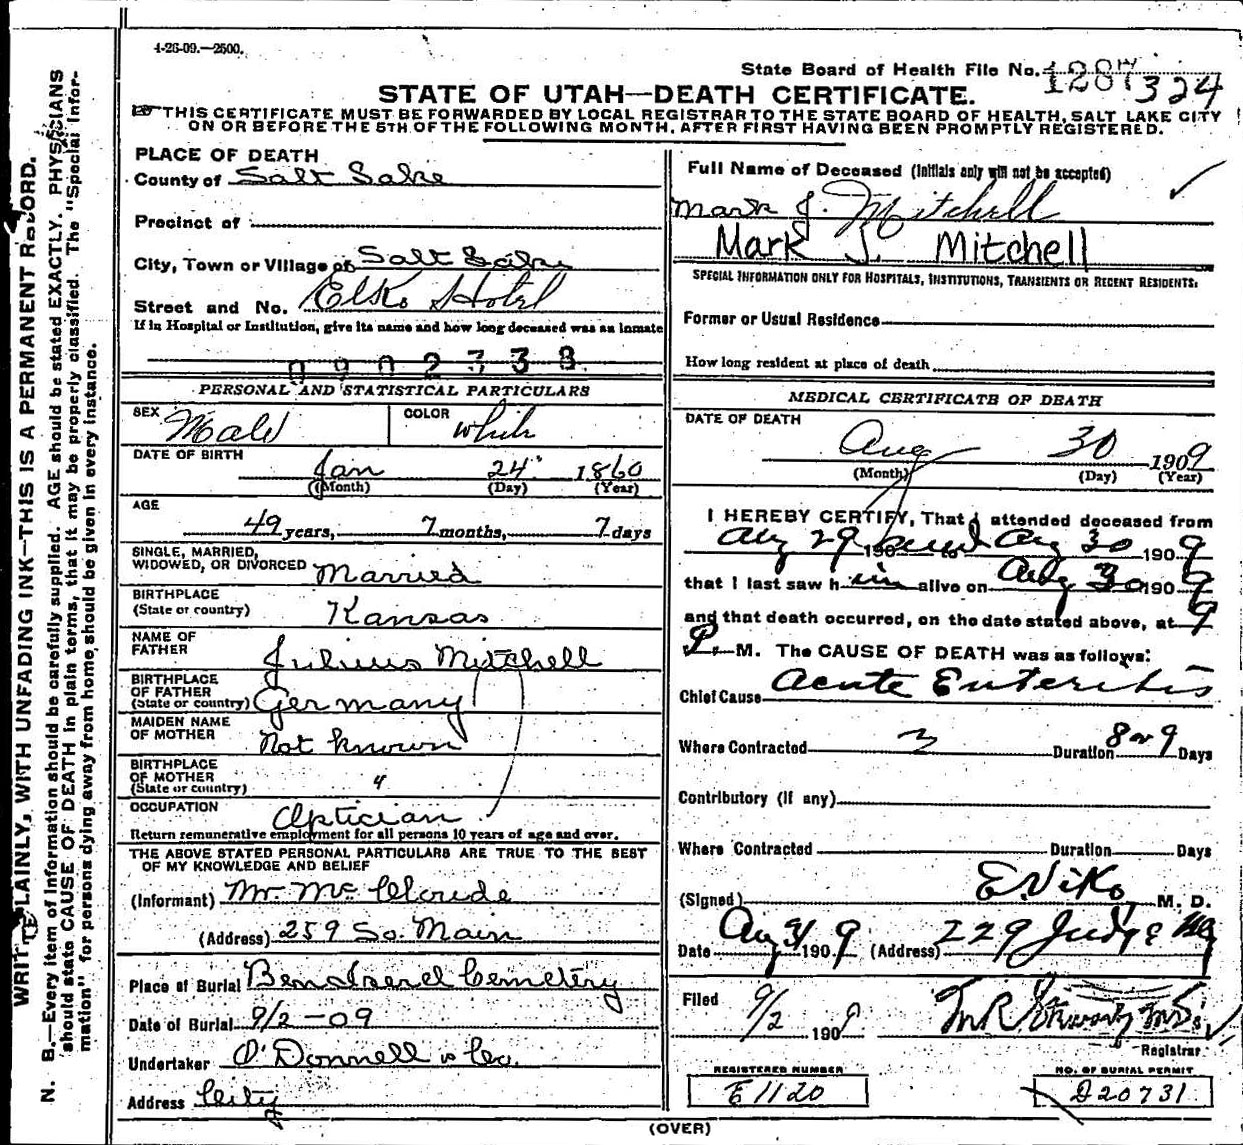 4-26-09.—2500.
State Board of Health File No. 324
STATE OF UTAH—DEATH CERTIFICATE.
THIS CERTIFICATE MUST BE FORWARDED BY LOCAL REGISTRAR TO THE STATE BOARD OF HEALTH, SALT LAKE CITY
ON OR BEFORE THE 5TH OF THE FOLLOWING MONTH, AFTER FIRST HAVING BEEN PROMPTLY REGISTERED.
WRITE PLAINLY, WITH UNFADING INK—THIS IS A PERMANENT RECORD.
N. B.—Every item of information should be carefully supplied. AGE should be stated EXACTLY. PHYSICIANS
should state CAUSE OF DEATH in plain terms, that it may be properly classified. The "Special Infor-
mation" for persons dying away from home should be given in every instance.
PLACE OF DEATH
County of Salt Lake
Precinct of
City, Town or Village of Salt Lake
Street and No. Elko Hotel
If in Hospital or Institution, give its name and how long deceased was an inmate
0902738
PERSONAL AND STATISTICAL PARTICULARS
SEX Male COLOR White
DATE OF BIRTH
Jan 24 1860
(Month) (Day) (Year)
AGE
49 years, 7 months, 7 days
SINGLE, MARRIED,
WIDOWED, OR DIVORCED Married
BIRTHPLACE
(State or country) Kansas
NAME OF
FATHER Julius Mitchell
BIRTHPLACE
OF FATHER
(State or country) Germany
MAIDEN NAME
OF MOTHER Not known
BIRTHPLACE
OF MOTHER
(State or country) "
OCCUPATION Optician
Return remunerative employment for all persons 10 years of age and over.
THE ABOVE STATED PERSONAL PARTICULARS ARE TRUE TO THE BEST
OF MY KNOWLEDGE AND BELIEF
(Informant) Mr. Mc
(Address) 259 So. Main
Place of Burial Cemetery
Date of Burial 9/2-09
Undertaker O'Donnell & Co.
Address City
Full Name of Deceased (Initials only will not be accepted)
Mark J. Mitchell
Mark J. Mitchell
SPECIAL INFORMATION ONLY FOR HOSPITALS, INSTITUTIONS, TRANSIENTS OR RECENT RESIDENTS:
Former or Usual Residence
How long resident at place of death
MEDICAL CERTIFICATE OF DEATH
DATE OF DEATH
Aug 30 1909
(Month) (Day) (Year)
I HEREBY CERTIFY, That I attended deceased from
Aug 29 190 and to Aug 30 1909
that I last saw h im alive on Aug 30 1909
and that death occurred, on the date stated above, at 9
P. M. The CAUSE OF DEATH was as follows:
Chief Cause Acute Enteritis
Where Contracted ? Duration 8 or 9 Days
Contributory (if any)
Where Contracted Duration Days
(Signed) E. Viko, M. D.
Date Aug 31 1909 (Address) 229 Judge Bldg
Filed 9/2 1909
Registrar
REGISTERED NUMBER
E 1120
NO. OF BURIAL PERMIT
D20731
(OVER)